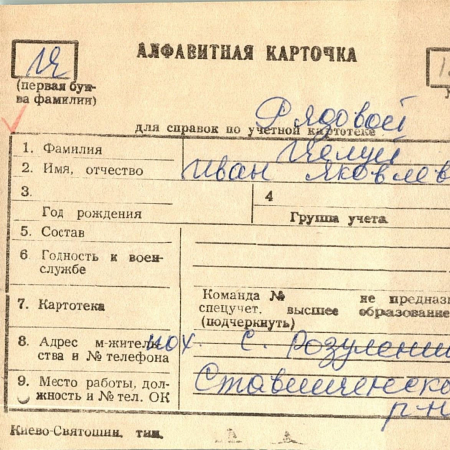 АЛФАВИТНАЯ КАРТОЧКА
(первая бук-
ва фамилии)
Рядовой
для справок по учетной картотеке
1. Фамилия
2. Имя, отчество Иван Яковлев
3.
Год рождения
4
Группа учета
5. Состав
6 Годность к воен-
службе
7. Картотека
Команда № не предназ
спецучет, высшее образование
(подчеркнуть)
8. Адрес м-житель-
ства и № телефона
с.
9. Место работы, дол-
жность и № тел. ОК
р-н
Киево-Святошин. тип.